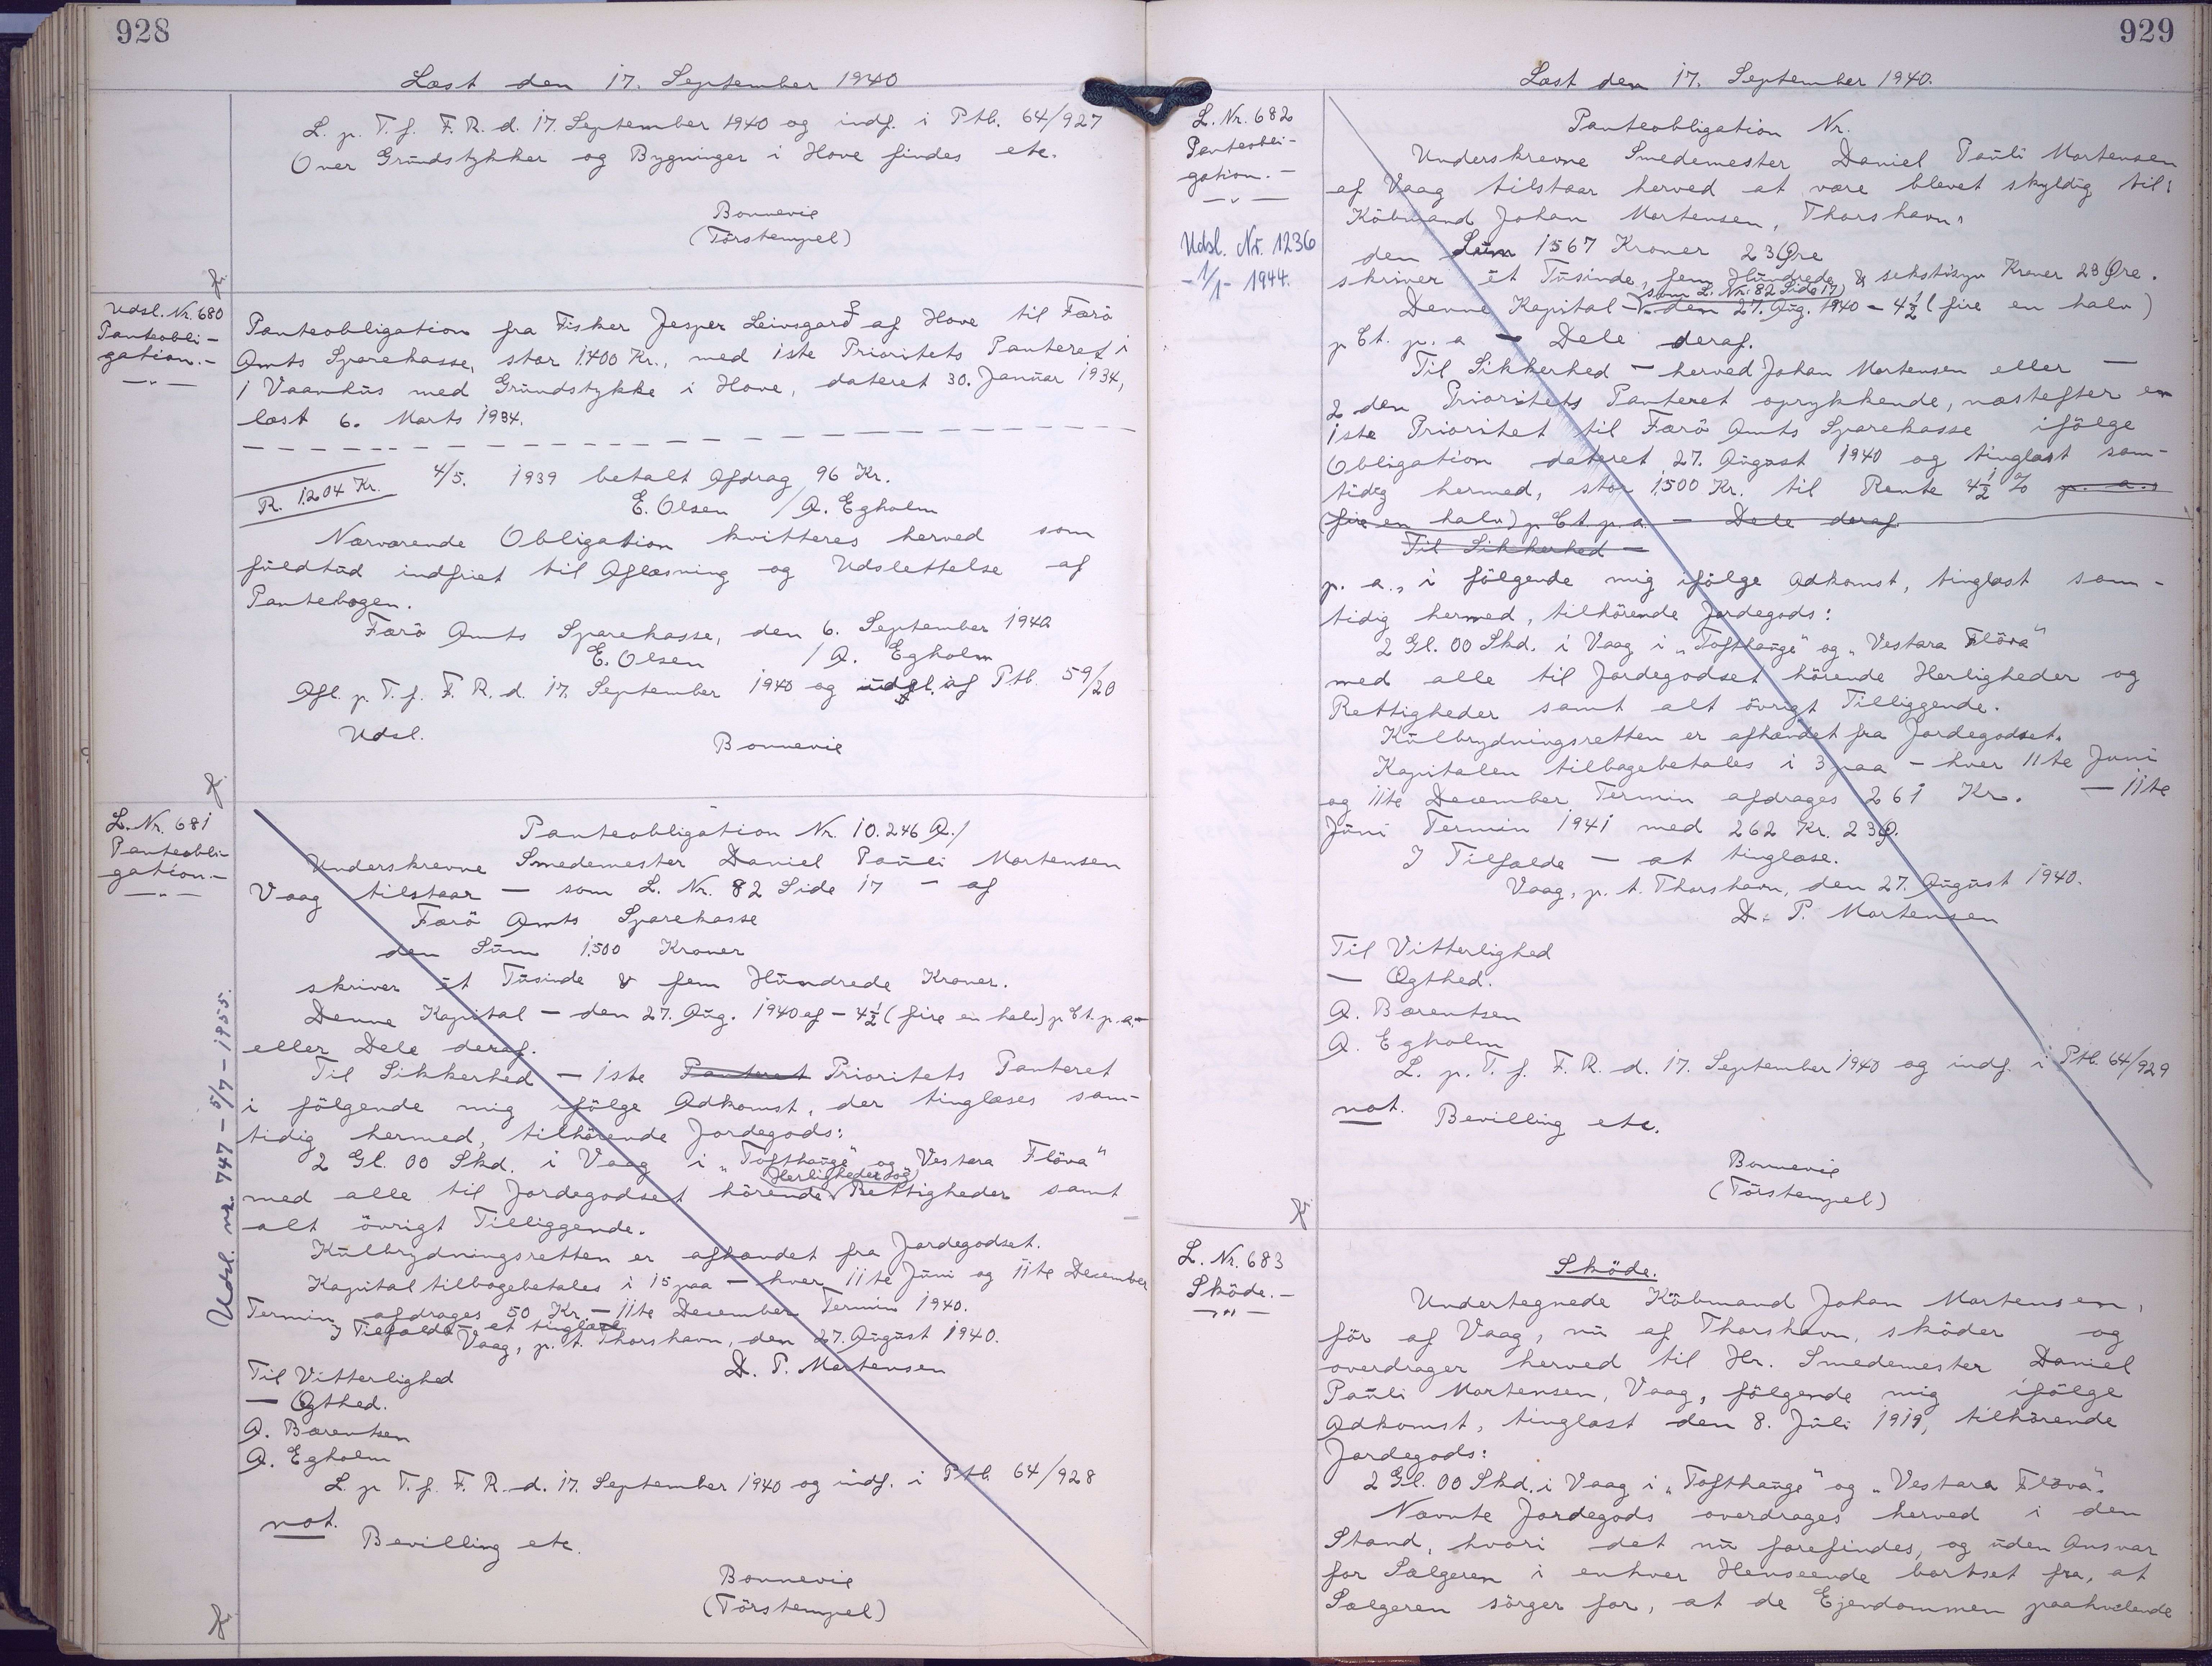 928
Læst den 17. September 1940
L. p. T. f. F. R. d. 17. September 1940 og indf. i Ptb. 64/927
Over Grundstykker og Bygninger i Hove findes etc.
Bonnevie
(Törstempel)
Udsl. Nr. 680
Panteobli-
gation.-
Panteobligation fra Fisker Jesper Leivsgard af Hove til Færö
Amts Sparekasse, stor 1400 Kr., med 1ste Prioritets Panteret i
1 Vaanhus med Grundstykke i Hove, dateret 30. Januar 1934,
læst 6. Marts 1934.
R. 1204 Kr. 4/5. 1939 betalt Afdrag 96 Kr.
E. Olsen / A. Egholm
Nærværende Obligation kvitteres herved som
fuldtud indfriet til Aflæsning og Udslettelse af
Pantebogen.
Færö Amts Sparekasse, den 6. September 1940
E. Olsen / A. Egholm
Afl. p. T. f. F. R. d. 17. September 1940 og udsl. af Ptb. 59/20
Udsl.
Bonnevie
L. Nr. 681
Panteobli-
gation.-
Udsl. nr. 747 - 5/7 - 1955.
Panteobligation Nr. 10.246 A./
Underskrevne Smedemester Daniel Pauli Mortensen
Vaag tilstaar — som L. Nr. 82 Side 17 — af
Færö Amts Sparekasse
den Sum 1500 Kroner
skriver et Tusinde & fem Hundrede Kroner.
Denne Kapital — den 27. Aug. 1940 af — 4½ (fire en halv) p Ct. p. a. —
eller Dele deraf.
Til Sikkerhed — 1ste Panteret Prioritets Panteret
i fölgende mig ifölge Adkomst, der tinglæses sam-
tidig hermed, tilhörende Jordegods:
2 Gl. 00 Skd. i Vaag i "Tofthauge" og Vestara Flöva"
Herligheder og
med alle til Jordegodset hörende Rettigheder samt
alt övrigt Tilliggende.
Kulbrydningsretten er afhændet fra Jordegodset.
Kapital tilbagebetales i 15 paa — hver 11te Juni og 11te December
Termin afdrages 50 Kr. — 11te December Termin 1940.
I Tilfælde — at tinglæse.
Vaag, p. t. Thorshavn, den 27. August 1940.
D. P. Mortensen
Til Vitterlighed
— Ægthed.
A. Bærentsen
A. Egholm
L. p T. f. F. R. d. 17. September 1940 og indf. i Ptb. 64/928
not.
Bevilling etc.
Bonnevie
(Törstempel)
929
Læst den 17. September 1940.
L. Nr. 682
Panteobli-
gation.-
Udsl. Nr. 1236
- 1/1 - 1944.
Panteobligation Nr.
Underskrevne Smedemester Daniel Pauli Mortensen
af Vaag tilstaar herved at være blevet skyldig til:
Köbmand Johan Mortensen, Thorshavn,
den Sum 1567 Kroner 23 Øre
skriver et Tusinde, fem Hundrede & sekstisyv Kroner 23 Øre.
som L. Nr. 82 Side 17)
Denne Kapital — den 27. Aug. 1940 — 4½ (fire en halv)
p Ct. p. a — Dele deraf.
Til Sikkerhed — herved Johan Mortensen eller —
2 den Prioritets Panteret oprykkende, næstefter en
1ste Prioritet til Færö Amts Sparekasse ifölge
Obligation dateret 27. August 1940 og tinglæst sam-
tidig hermed, stor 1500 Kr. til Rente 4½ % p. a.,
(fire en halv) p Ct. p. a. — Dele deraf.
Til Sikkerhed —
p. a., i fölgende mig ifölge Adkomst, tinglæst sam-
tidig hermed, tilhörende Jordegods:
2 Gl. 00 Skd. i Vaag i "Tofthauge" og "Vestara Flöva"
med alle til Jordegodset hörende Herligheder og
Rettigheder samt alt övrigt Tilliggende.
Kulbrydningsretten er afhændet fra Jordegodset.
Kapitalen tilbagebetales i 3 paa — hver 11te Juni
og 11te December Termin afdrages 261 Kr. — 11te
Juni Termin 1941 med 262 Kr. 23 Ø.
I Tilfælde — at tinglæse.
Vaag, p. t. Thorshavn, den 27. August 1940.
D. P. Mortensen
Til Vitterlighed
— Ægthed.
A. Bærentsen
A. Egholm
L. p. T. f. F. R. d. 17. September 1940 og indf. i Ptb. 64/929
not. Bevilling etc.
Bonnevie
(Törstempel)
L. Nr. 683
Sköde.-
Sköde.
Undertegnede Köbmand Johan Mortensen,
för af Vaag, nu af Thorshavn, sköder og
overdrager herved til Hr. Smedemester Daniel
Pauli Mortensen, Vaag, fölgende mig ifölge
Adkomst, tinglæst den 8. Juli 1919, tilhörende
Jordegods:
2 Gl. 00 Skd. i Vaag i "Tofthauge" og "Vestara Flöva".
Nævnte Jordegods overdrages herved i den
Stand, hvori det nu forefindes, og uden Ansvar
for Sælgeren i enhver Henseende bortset fra, at
Sælgeren sörger for, at de Ejendommen paahvilende